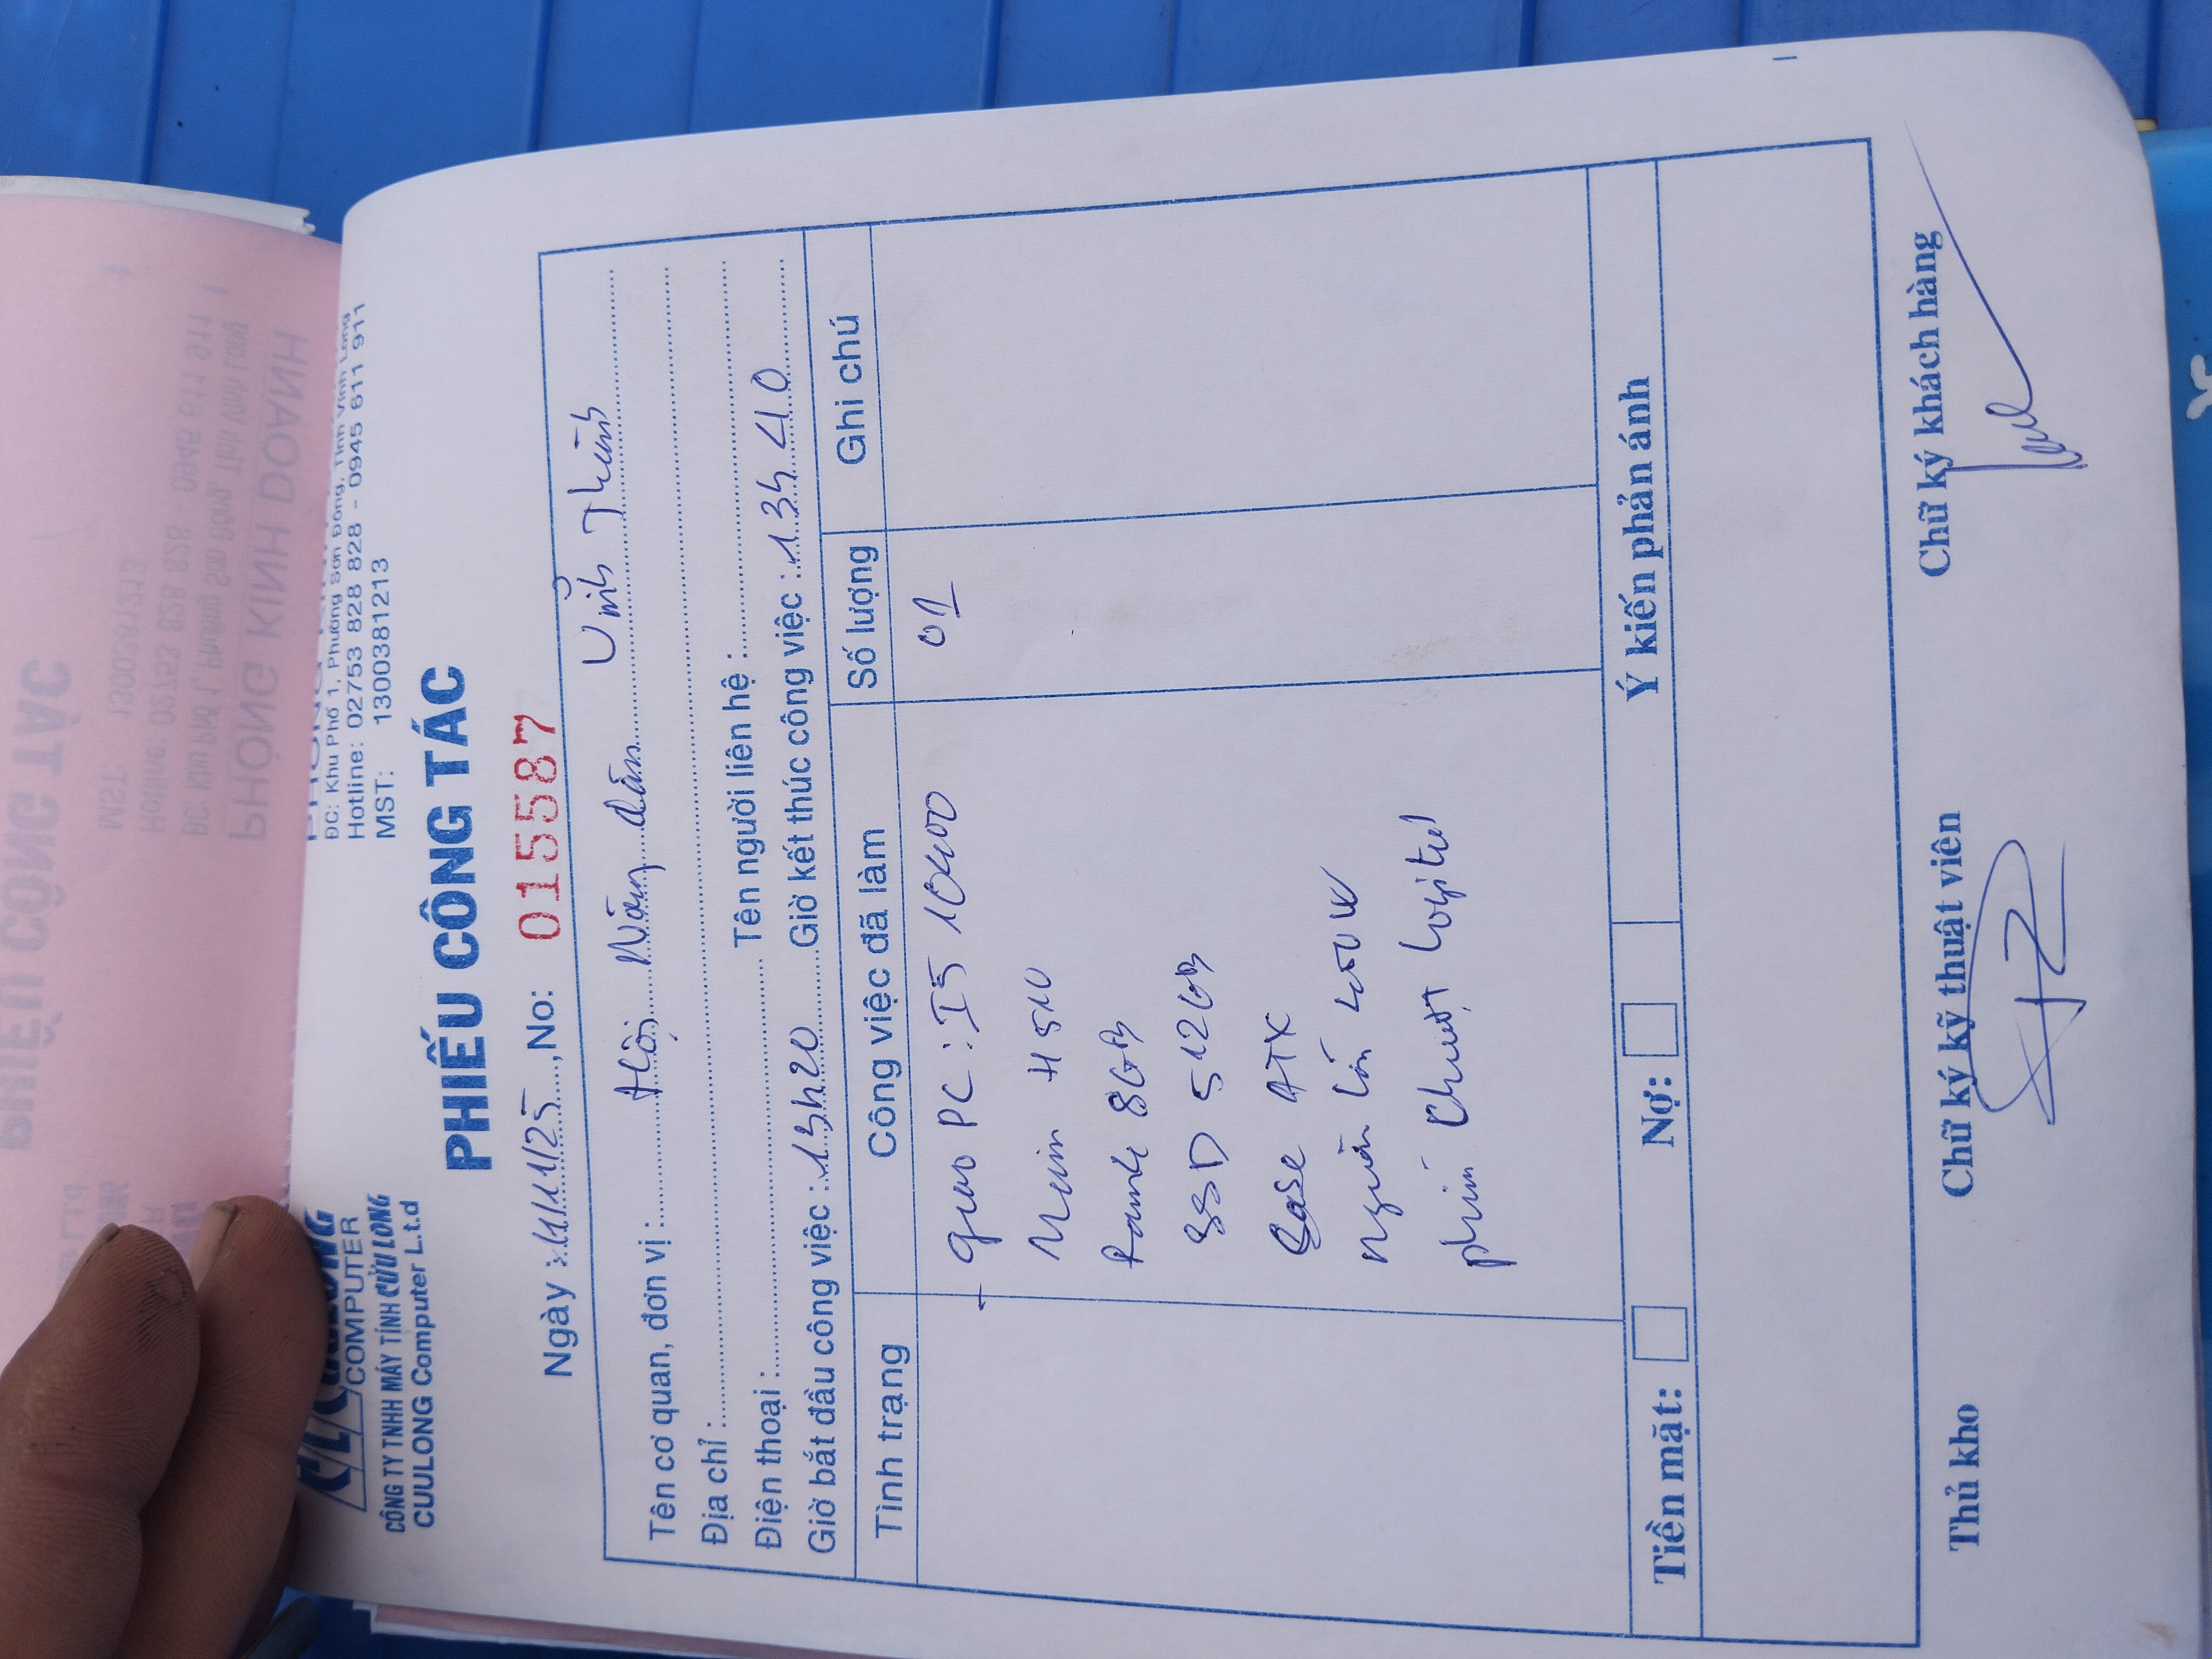 COMPUTER
CÔNG TY TNHH MÁY TÍNH CỬU LONG
CUULONG Computer L.t.d
ĐC: Khu Phố 1, Phường Sơn Đông, Tỉnh Vĩnh Long
Hotline: 02753 828 828 - 0945 611 911
MST: 1300381213
PHIẾU CÔNG TÁC
Ngày : 11/11/25, No: 015587
Tên cơ quan, đơn vị : Hội Nông dân Vĩnh Thành
Địa chỉ :
Điện thoại : Tên người liên hệ :
Giờ bắt đầu công việc : 13h20 Giờ kết thúc công việc : 13h40
Tình trạng Công việc đã làm Số lượng Ghi chú
+ giao PC : I5 10400 01
Main H510
Ram4 8GB
SSD 512GB
Case ATX
Nguồn lớn
phím Chuột Logitel
Tiền mặt: Nợ: Ý kiến phản ánh
Thủ kho Chữ ký kỹ thuật viên Chữ ký khách hàng